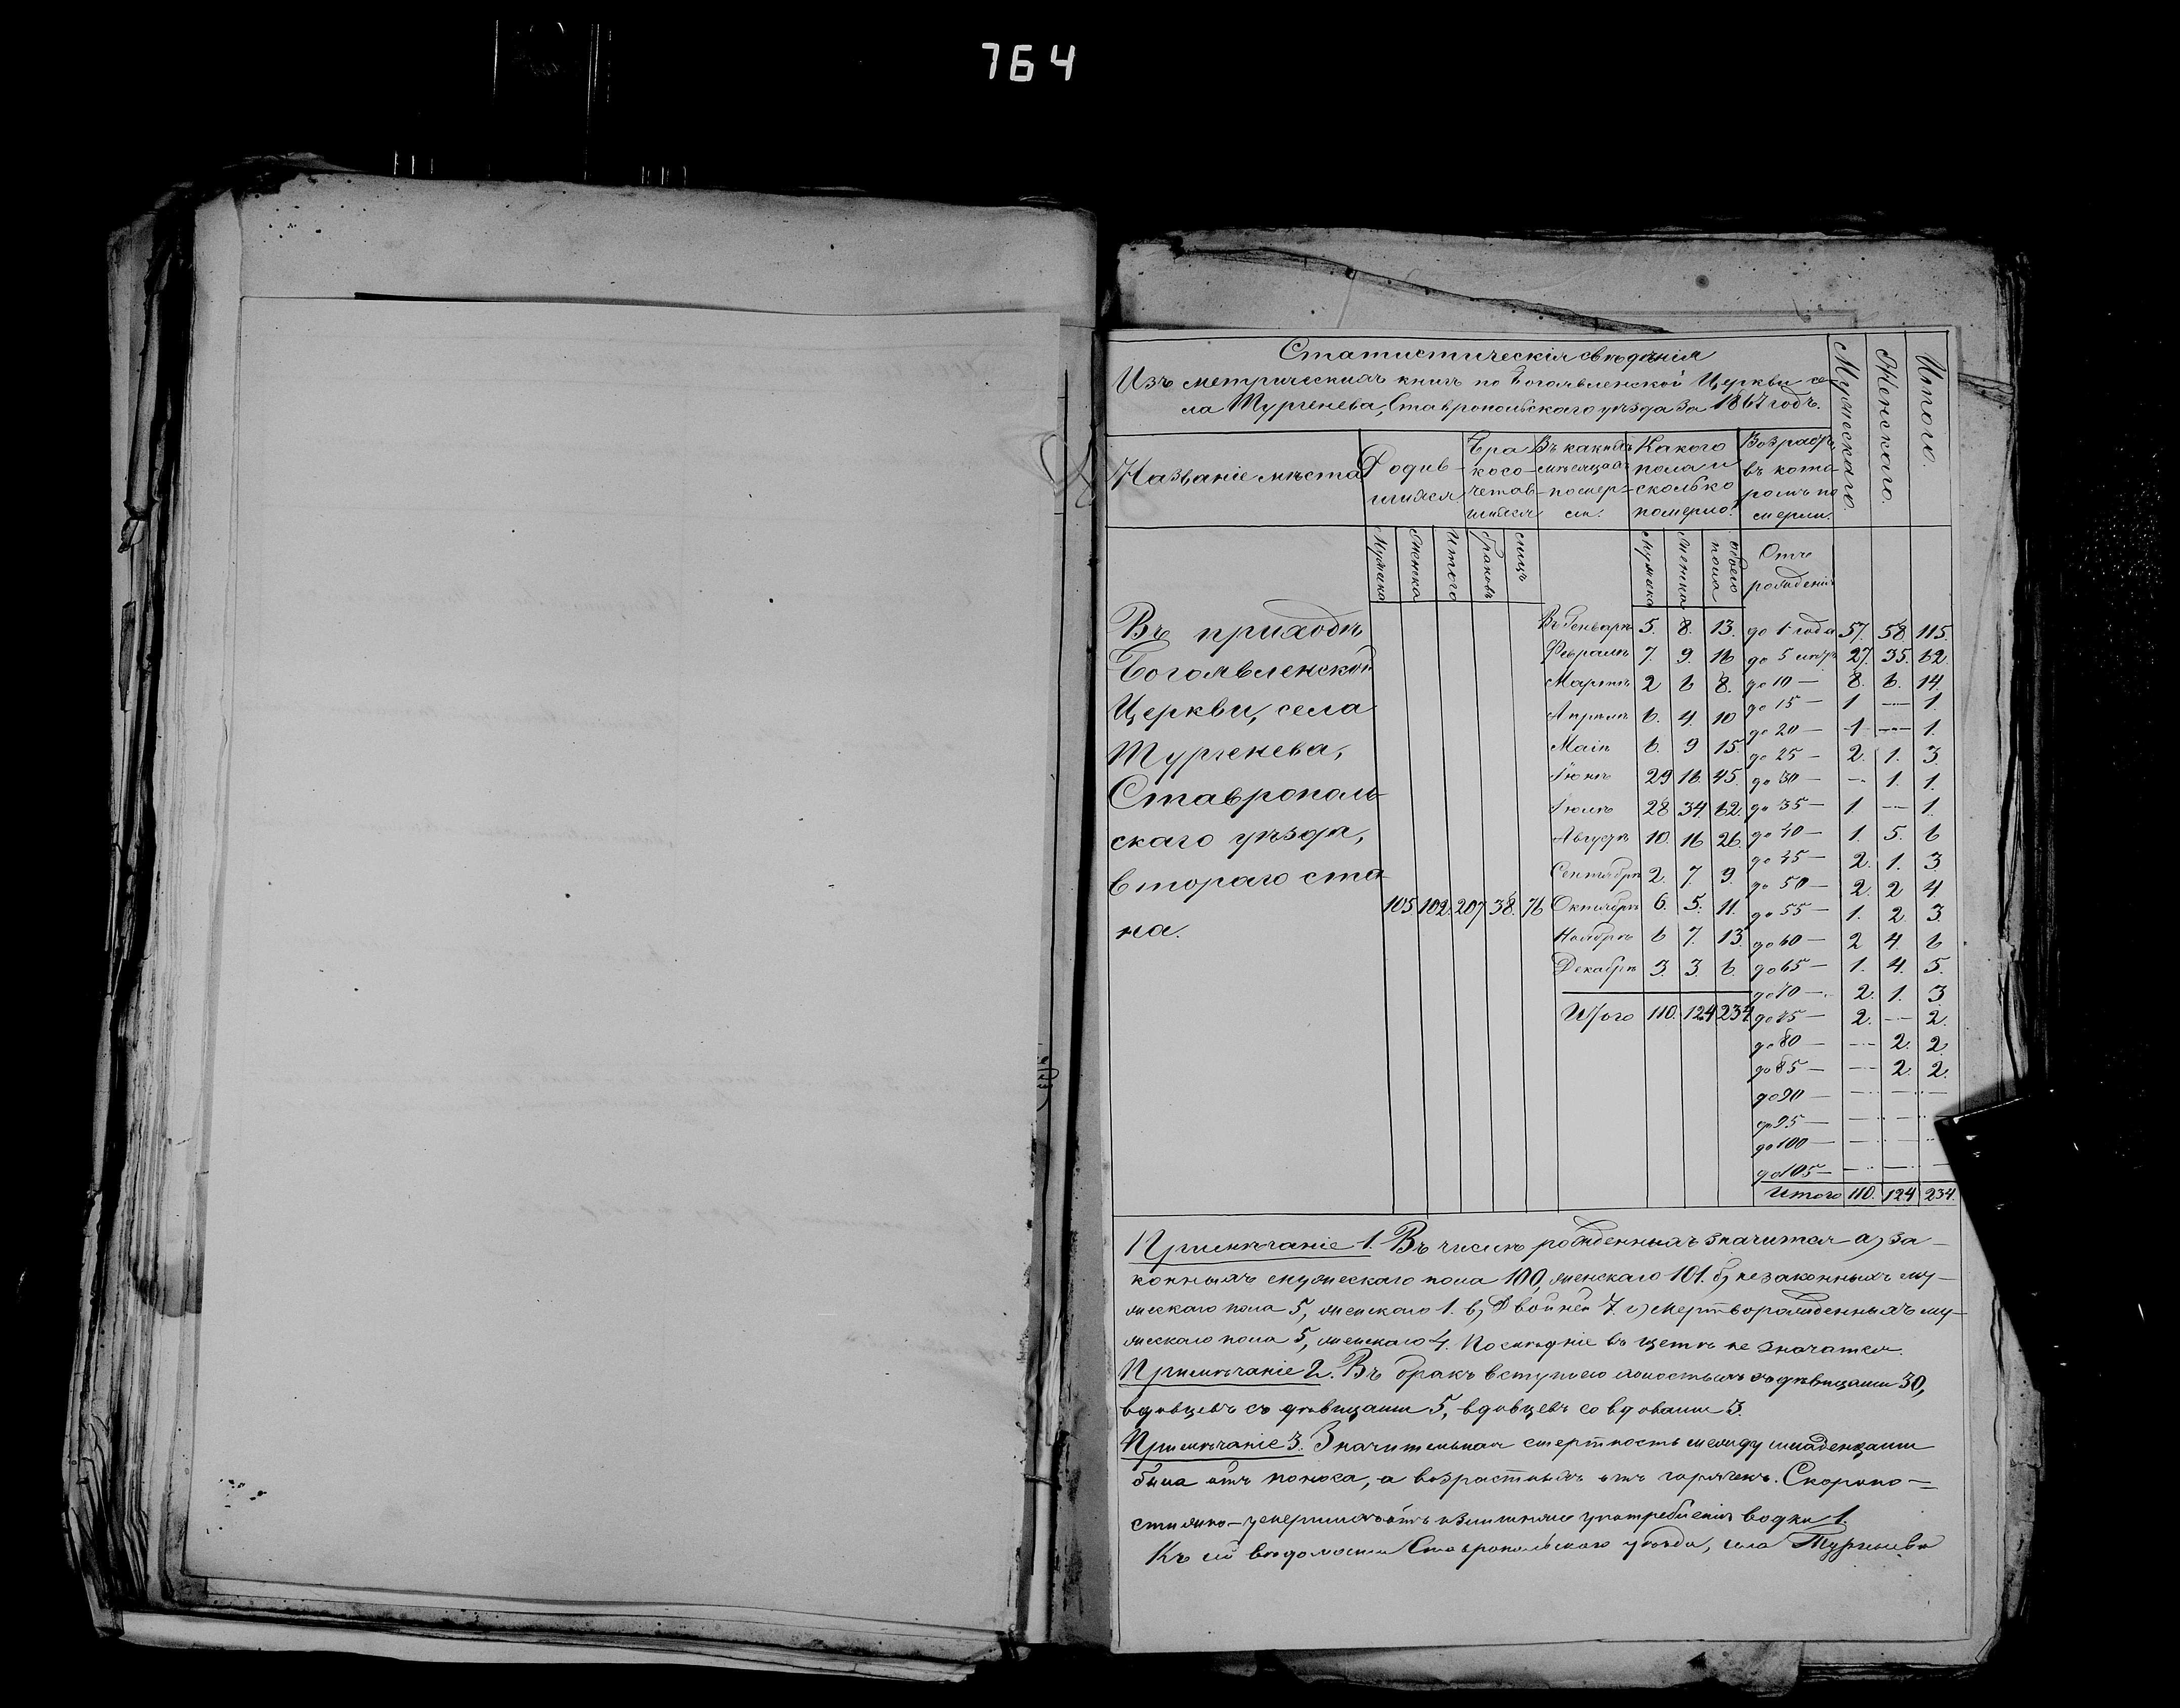 764
Статистическія свѣдѣнія
Изъ метрическихъ книгъ по Богоявленской Церкви се-
ла Тургенева, Ставропольскаго уѣзда за 1867 годъ.
Мужескаго.
Женскаго.
Итого.
Названіе мѣста
Родив-
шихся
Бра
косо-
четав-
шихся
Въ какихъ
мѣсяцахъ
помер-
ли.
Какого
пола и
сколько
померло.
Возрастъ
въ кото-
ромъ по
мерли.
Мужеска
Женска
Итого
браковъ
лицъ
Мужеска
Женска
обоего
пола
Отъ
рожденія
Въ приходѣ
Богоявленской
Церкви, села
Тургенева,
Ставрополь-
скаго уѣзда,
втораго ста-
на.
105. 102. 207. 38. 76
Въ Генварѣ 5. 8. 13.
Февралѣ 7. 9. 16
Мартѣ 2 6 8.
Апрѣлѣ 6. 4. 10
Маіѣ 6. 9 15.
Іюнѣ 29 16. 45.
Іюлѣ 28 34. 62.
Августѣ 10. 16 26.
Сентябрѣ 2. 7. 9.
Октябрѣ 6. 5. 11.
Ноябрѣ 6 7. 13.
Декабрѣ 3. 3. 6.
Итого 110. 124 234.
до 1 года 57. 58. 115.
до 5 лѣтъ 27. 35. 62.
до 10 — 8. 6. 14.
до 15 — 1 — 1.
до 20 — 1 — 1.
до 25 — 2. 1. 3.
до 30 — — 1. 1.
до 35 — 1 — 1.
до 40 — 1. 5. 6
до 45 — 2. 1. 3
до 50 — 2. 2 4
до 55 — 1. 2. 3.
до 60 — 2 4. 6
до 65 — 1. 4. 5.
до 70 — 2. 1. 3.
до 75 — 2. — 2.
до 80 — — 2. 2.
до 85 — — 2. 2.
до 90 — — — —
до 95 — — — —
до 100 — — — —
до 105 — — — —
Итого 110. 124 234.
Примѣчаніе 1. Въ числѣ рожденныхъ значится а) за-
конныхъ мужескаго пола 100, женскаго 101. б) незаконныхъ му-
жескаго пола 5, женскаго 1. в) Двойней 7. г) мертворожденныхъ му-
жескаго пола 5, женскаго 4. Послѣдніе въ щетѣ не значатся.
Примѣчаніе 2. Въ бракъ вступило холостыхъ съ дѣвицами 30,
вдовцевъ съ дѣвицами 5, вдовцевъ со вдовами 3.
Примѣчаніе 3. Значительная смертность между младенцами
была отъ поноса, а возрастныхъ отъ горячекъ. Скоропо-
стижно-умершихъ отъ излишняго употребленія водки 1.
Къ сей вѣдомости Ставропольскаго уѣзда, села Тургенева